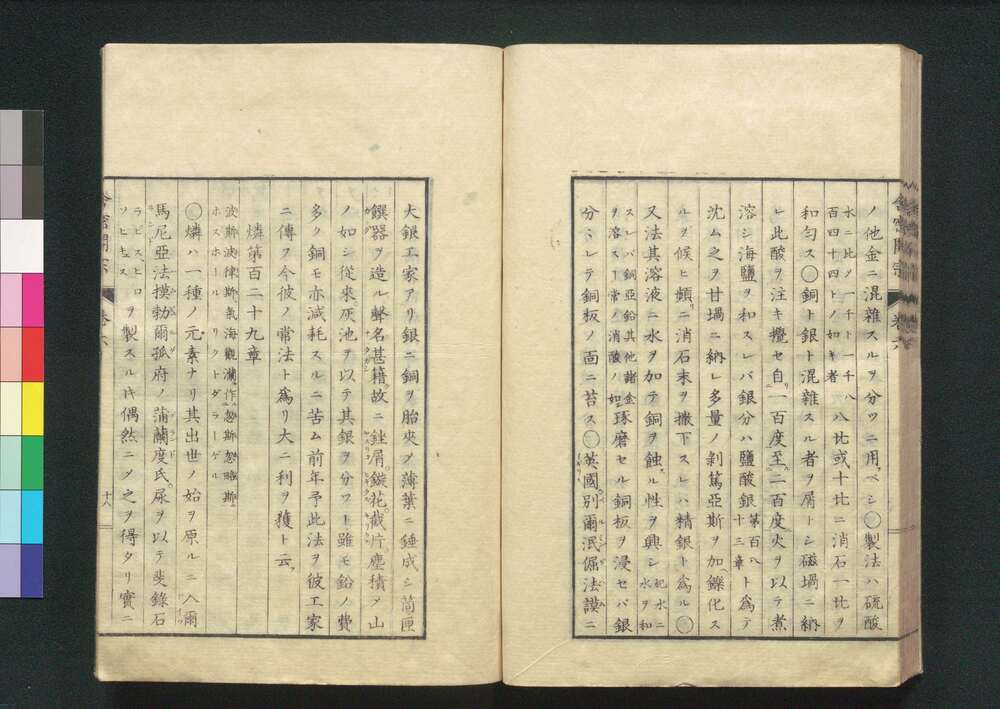 ノ他金ニ混雜スルヲ分ツニ用ベシ○製法ハ硫酸
水ニ比グ一千ト一千八
百四十四トノ如キ者八比或十比ニ消石一比ヲ
和匀ス○銅ト銀ト混雜スル者ヲ屑トシ磁堝ニ納
レ此酸ヲ注キ攪セ自一百度至二百度火ヲ以テ煮
溶シ海鹽ヲ和スレバ銀分ハ鹽酸銀第百八十三章ト為テ
沈ム之ヲ甘堝ニ納レ多量ノ剝篤亞斯ヲ加鑠化ス
ルヲ候ヒ頻ニ消石末ヲ撒下スレハ精銀ト為ル○
又法其溶液ニ水ヲ加テ銅ヲ蝕ル性ヲ興シ
水ヲ和
スレバ銅亞鉛其他諸金
ヲ溶スコト常ノ消酸ノ如琢磨セル銅板ヲ浸セバ銀
分ミレテ銅板ノ面ニ苔ス○英國別爾泯倔法謨ニ
大銀工家アリ銀ニ銅ヲ胎夾グ薄葉ニ錘成シ筒匣
饌器ヲ造ル聲名甚籍故ニ銼屑鏇花截片塵積メ山
ノ如シ從來灰池ヲ以テ其銀ヲ分ツト雖モ鉛ノ費
多ク銅モ亦減耗スルニ苦ム前年予此法ヲ彼工家
ニ傳フ今彼ノ常法ト為リ大ニ利ヲ獲ト云
燐第百二十九章
波斯波律斯氣海觀瀾作忽斯忽略斯
ホスホール リクトダラーゲル
○燐ハ一種ノ元素ナリ其出世ノ始ヲ原ルニ入爾
馬尼亞法摸勃爾孤府ノ蒲蘭度氏尿ヲ以テ斐錄石
ラピス、ヒロ
ソヒキュスヲ製スル𪜈偶然ニグ之ヲ得タリ實ニ
十八